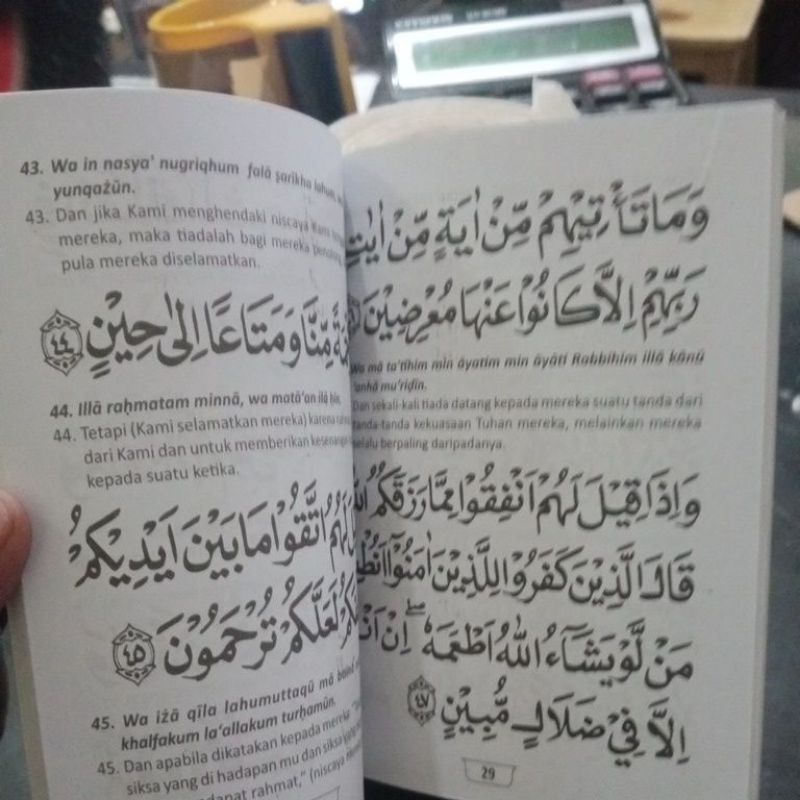 43. Wa in nasya' nugriqhum falā ṣarīkha lahum
yunqażūn.
43. Dan jika Kami menghendaki niscaya Kami
mereka, maka tiadalah bagi mereka
pula mereka diselamatkan.
مِّنَّا وَمَتَاعًا اِلٰى حِيْنٍ ٤٤
44. Illā raḥmatam minnā, wa matā'an ilā ḥīn.
44. Tetapi (Kami selamatkan mereka) karena
dari Kami dan untuk memberikan kesenangan
kepada suatu ketika.
لَهُمُ اتَّقُوْا مَا بَيْنَ اَيْدِيْكُمْ
لَعَلَّكُمْ تُرْحَمُوْنَ ٤٥
45. Wa iżā qīla lahumuttaqū mā baina
khalfakum la'allakum turḥamūn.
45. Dan apabila dikatakan kepada mereka
siksa yang di hadapan mu dan siksa yang
rahmat," (niscaya
وَمَا تَأْتِيْهِمْ مِّنْ اٰيَةٍ مِّنْ اٰيٰتِ
رَبِّهِمْ اِلَّا كَانُوْا عَنْهَا مُعْرِضِيْنَ
Wa mā ta'tīhim min āyatim min āyāti Rabbihim illā kānū
'anhā mu'riḍīn.
Dan sekali-kali tiada datang kepada mereka suatu tanda dari
tanda-tanda kekuasaan Tuhan mereka, melainkan mereka
selalu berpaling daripadanya.
وَاِذَا قِيْلَ لَهُمْ اَنْفِقُوْا مِمَّا رَزَقَكُمُ اللّٰهُ
قَالَ الَّذِيْنَ كَفَرُوْا لِلَّذِيْنَ اٰمَنُوْٓا
مَنْ لَّوْ يَشَاۤءُ اللّٰهُ اَطْعَمَهٗٓ ۖاِنْ
اِلَّا فِيْ ضَلٰلٍ مُّبِيْنٍ ٤٧
29